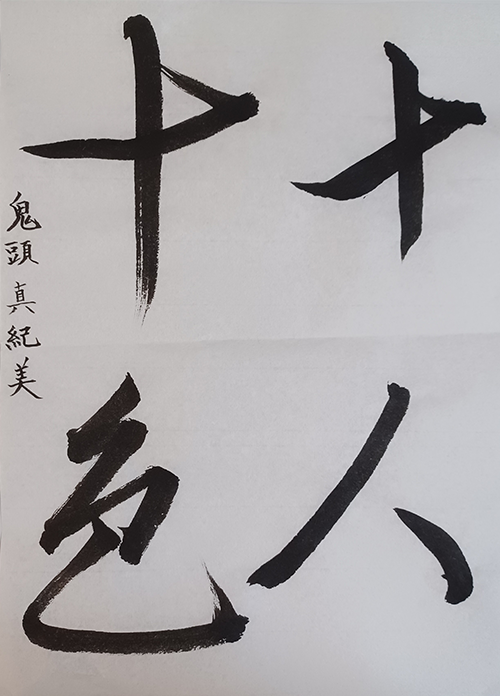 十人
十色
鬼頭 真紀美